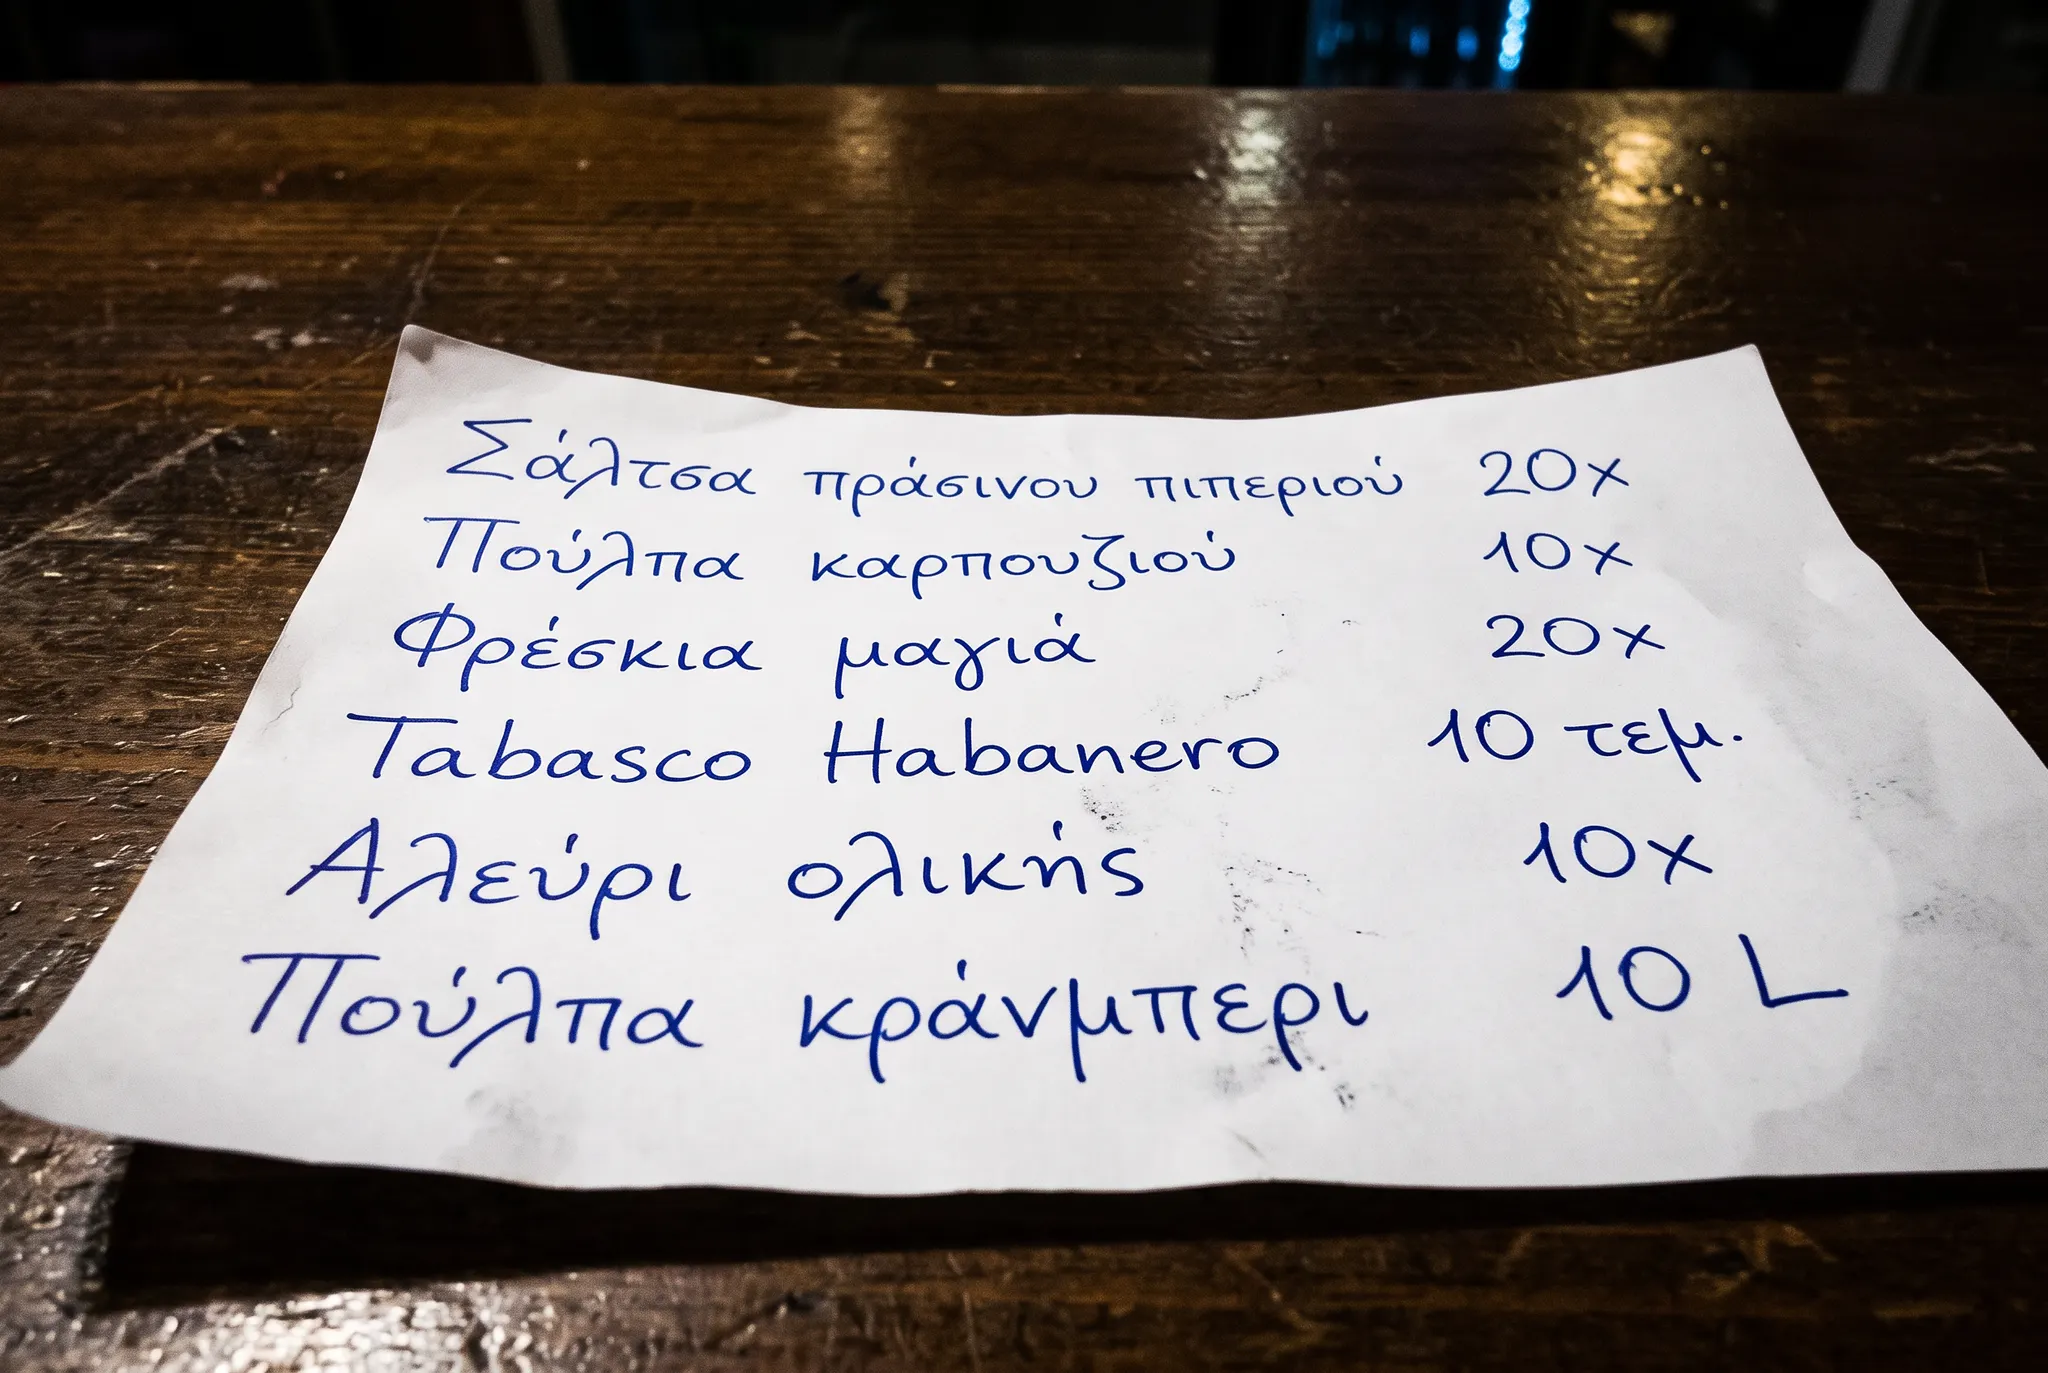 Σάλτσα πράσινου πιπεριού 20x
Πούλπα καρπουζιού 10x
Φρέσκια μαγιά 20x
Tabasco Habanero 10 τεμ.
Αλεύρι ολικής 10x
Πούλπα κράνμπερι 10 L